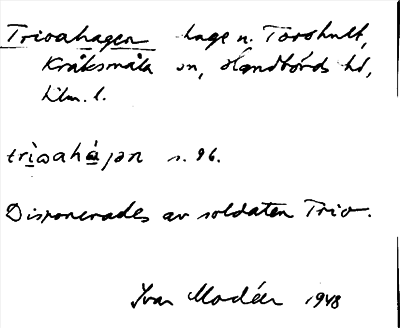 Trioahagen hage n. Torohult,
Kråksmåla sn, Handbörds hd,
Klm. l.
trìoahá̱jən s. 96.
Disponerades av soldaten Trio.
Ivar Modéer 1948